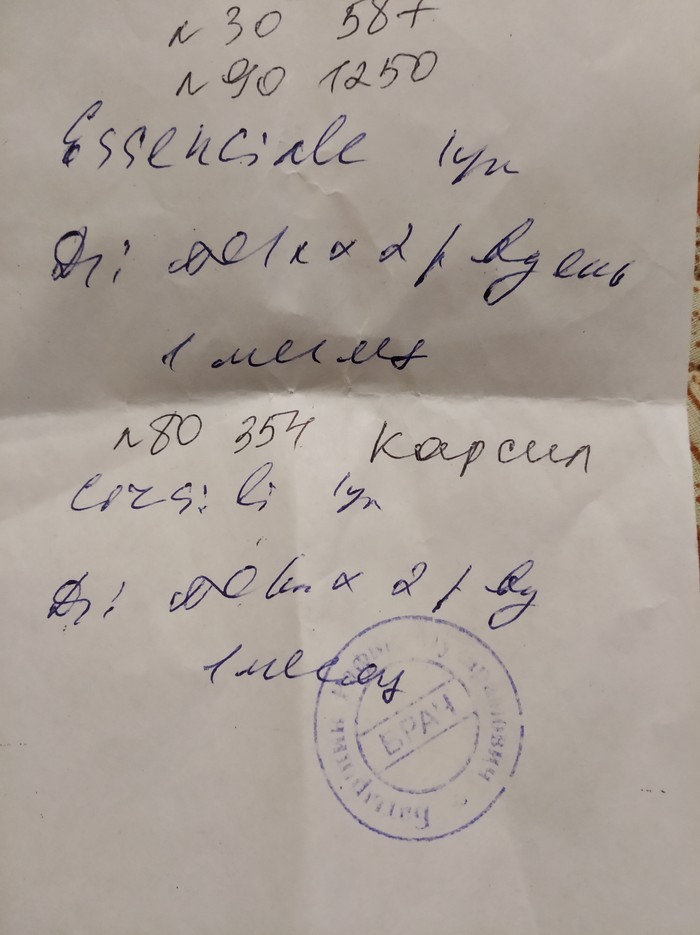 N30 587
N90 1250
Essenciale 1уп
1к x 2 р в день
1 месяц
N80 354 Карсил
Carsili 1уп
x 2 р в д
1 месяц
ВРАЧ